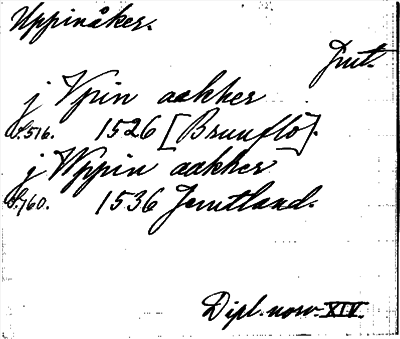 Uppinåker.
Jmt.
j Vpin aakker
S. 516. 1526 [Brunflo].
j Wppin aakker
S. 760. 1536 Jemtland.
Dipl. norv. XIV.